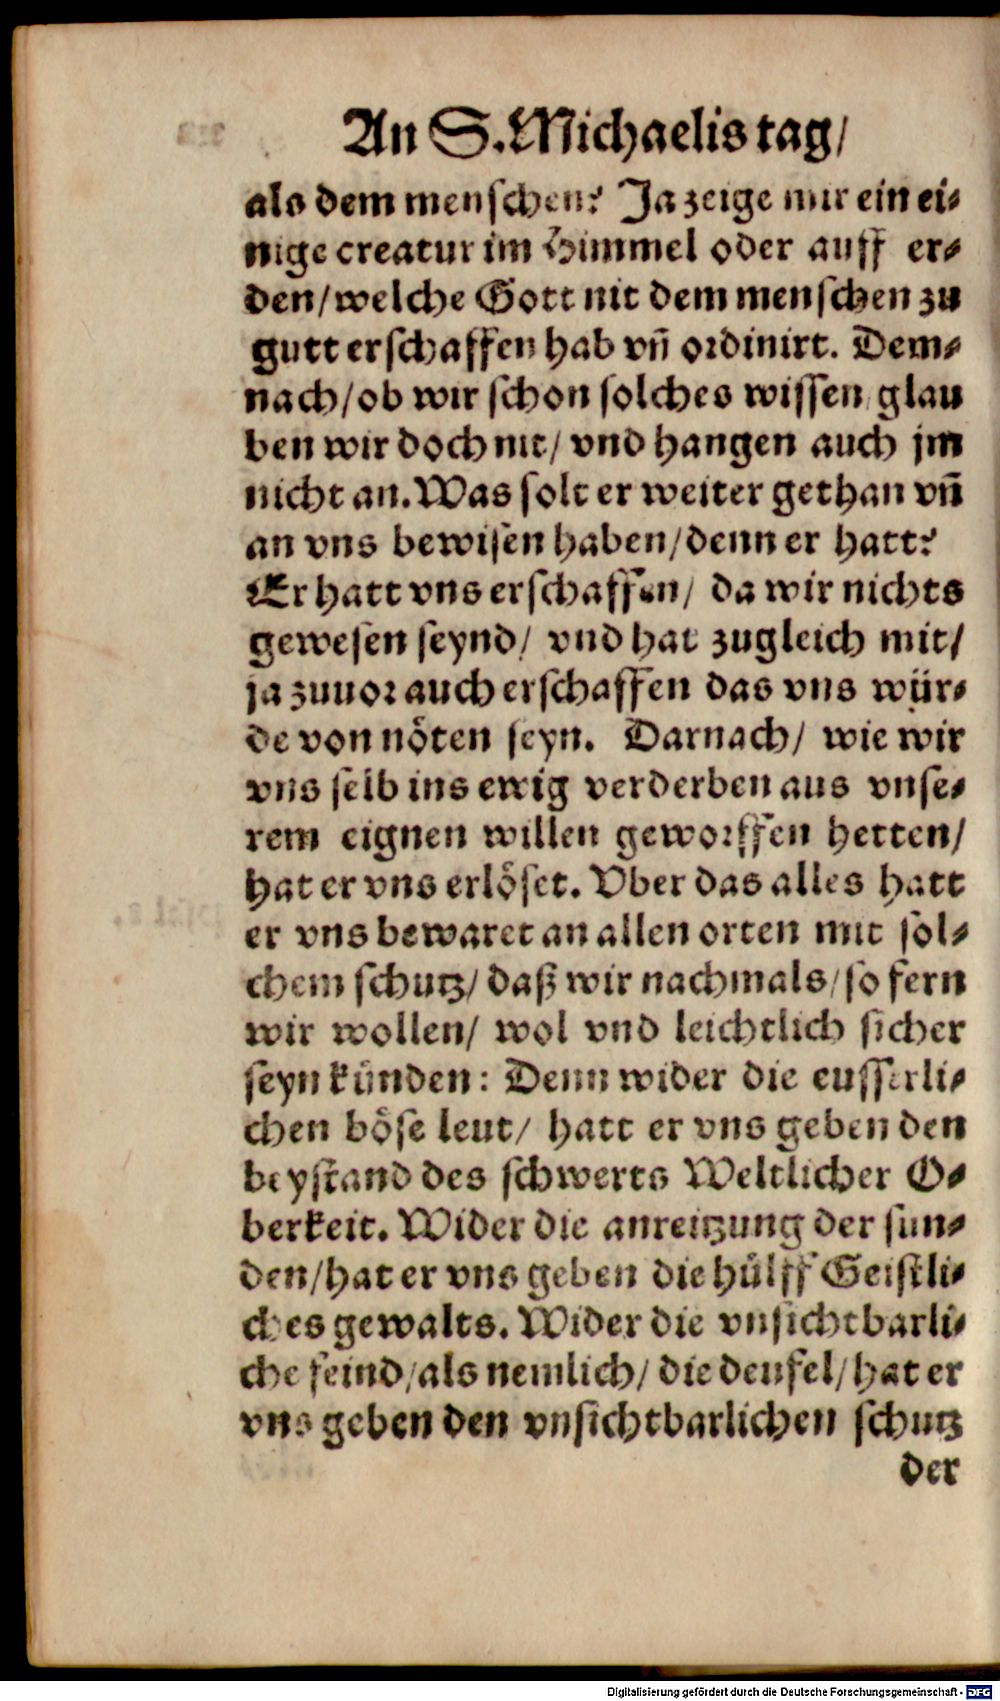 An S. Michaelis tag/
als dem menschen? Ja zeige mir ein ei-
nige creatur im Himmel oder auff er-
den/welche Gott nit dem menschen zu
gutt erschaffen hab vñ ordinirt. Dem-
nach/ob wir schon solches wissen/glau
ben wir doch nit/ vnd hangen auch jm
nicht an. Was solt er weiter gethan vñ
an vns bewisen haben/denn er hatt?
Er hatt vns erschaffen/ da wir nichts
gewesen seynd/ vnd hat zugleich mit/
ja zuuor auch erschaffen das vns wür-
de von nöten seyn. Darnach/ wie wir
vns selb ins ewig verderben aus vnse-
rem eignen willen geworffen hetten/
hat er vns erlöset. Vber das alles hatt
er vns bewaret an allen orten mit sol-
chem schutz/ daß wir nachmals/so fern
wir wollen/ wol vnd leichtlich sicher
seyn künden: Denn wider die eusserli-
chen böse leut/ hatt er vns geben den
beystand des schwerts Weltlicher O-
berkeit. Wider die anreitzung der sun-
den/hat er vns geben die hülff Geistli-
ches gewalts. Wider die vnsichtbarli-
che feind/als nemlich/ die deufel/hat er
vns geben den vnsichtbarlichen schutz
der
Digitalisierung gefördert durch die Deutsche Forschungsgemeinschaft - DFG